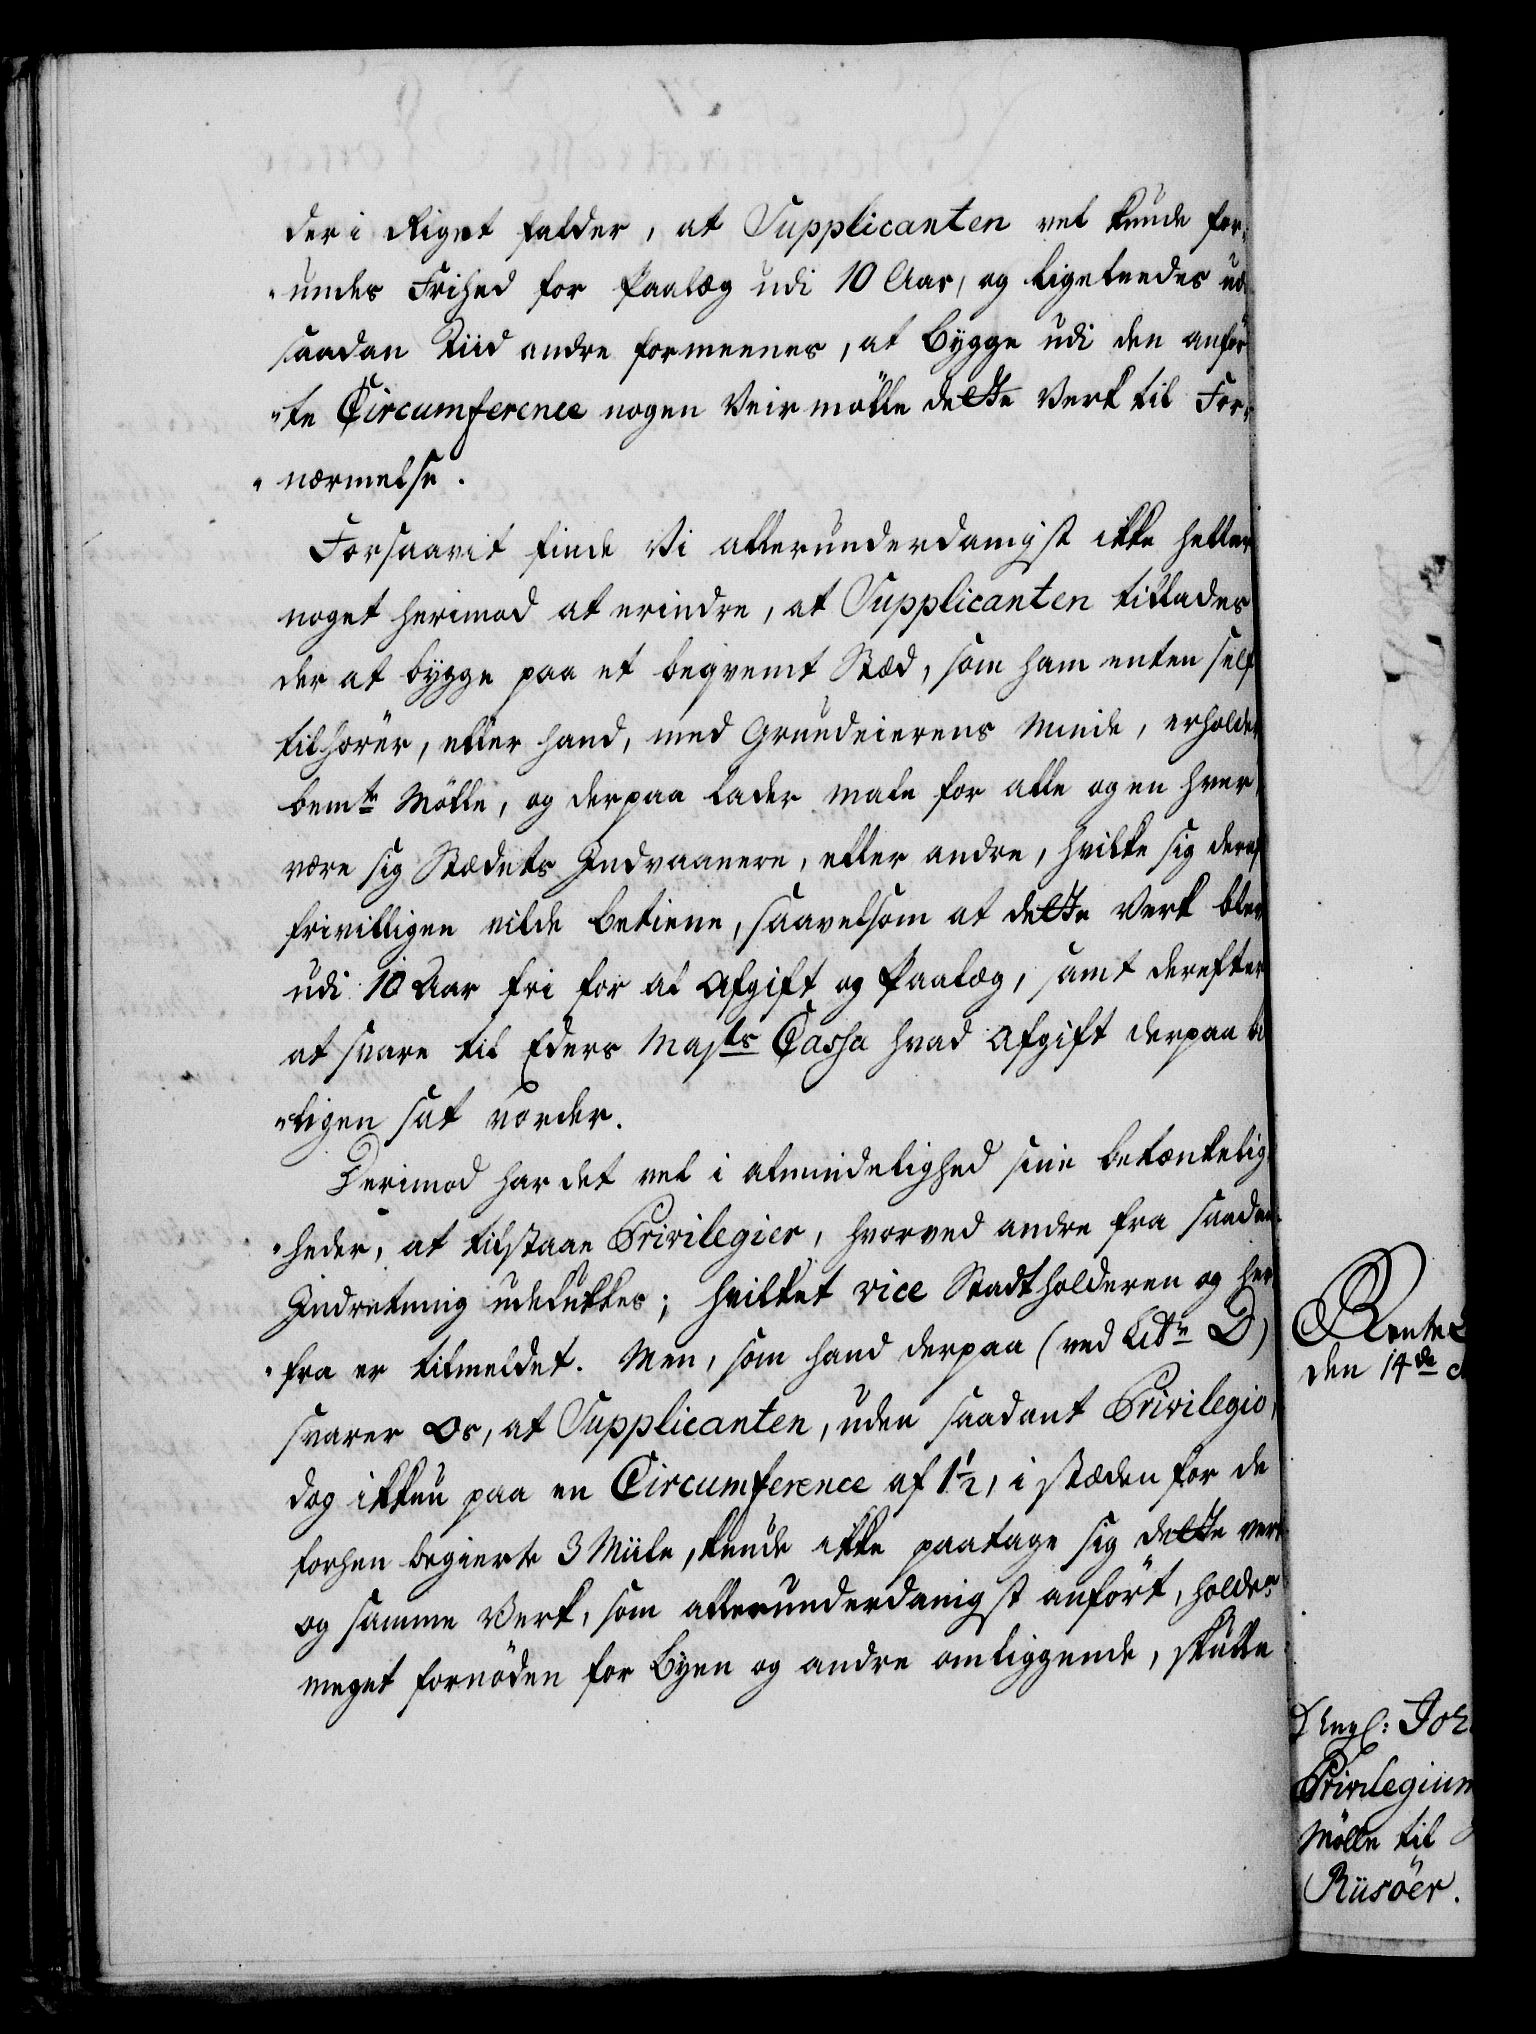 der i Riget falder, at Supplicanten vel kunde for¬
"undes Frihed for Paalæg udi 10 Aar, og ligeleedes ud
saadan Tiid andre formeenes, at bygge udi den anför
"te Circumference nogen Veirmölle dette Verk til For¬
"nærmelse.
Forsaavit finde Vi allerunderdanigst ikke heller
noget herimod at erindre, at Supplicanten tillades
der at bygge paa et beqvemt Stæd, som ham enten self
tilhörer, eller hand, med Grundeierens Minde, erholder
bemte Mölle, og derpaa lader male for alle og en hver,
være sig Stædets Indvaanere, eller andre, hvilke sig deraf
frivilligen vilde betiene, saavelsom at dette Verk blev
udi 10 Aar fri for al Afgift og Paalæg, samt derefter
at svare til Eders Majts Cassa hvad Afgift derpaa bil
"ligen sat vorder.
Derimod har det vel i almindelighed sine betænkelig
"heder, at tilstaae Privilegier, hvorved andre fra saadan
Indretning udelukkes; hvilket vice Stadtholderen og her
"fra er tilmeldet. Men, som hand derpaa (ved Litr D)
svarer Os, at Supplicanten, uden saadant Privilegio,
dog ikkun paa en Circumference af 1½, i stæden for de
forhen begierte 3 Miile, kunde ikke paatage sig dette verk
og samme Verk, som allerunderdanigst anfört, holdes
meget fornöden for Byen og andre omliggende, skulle
Rente
den 14de
Privilegium
Mölle til
Riisöer.